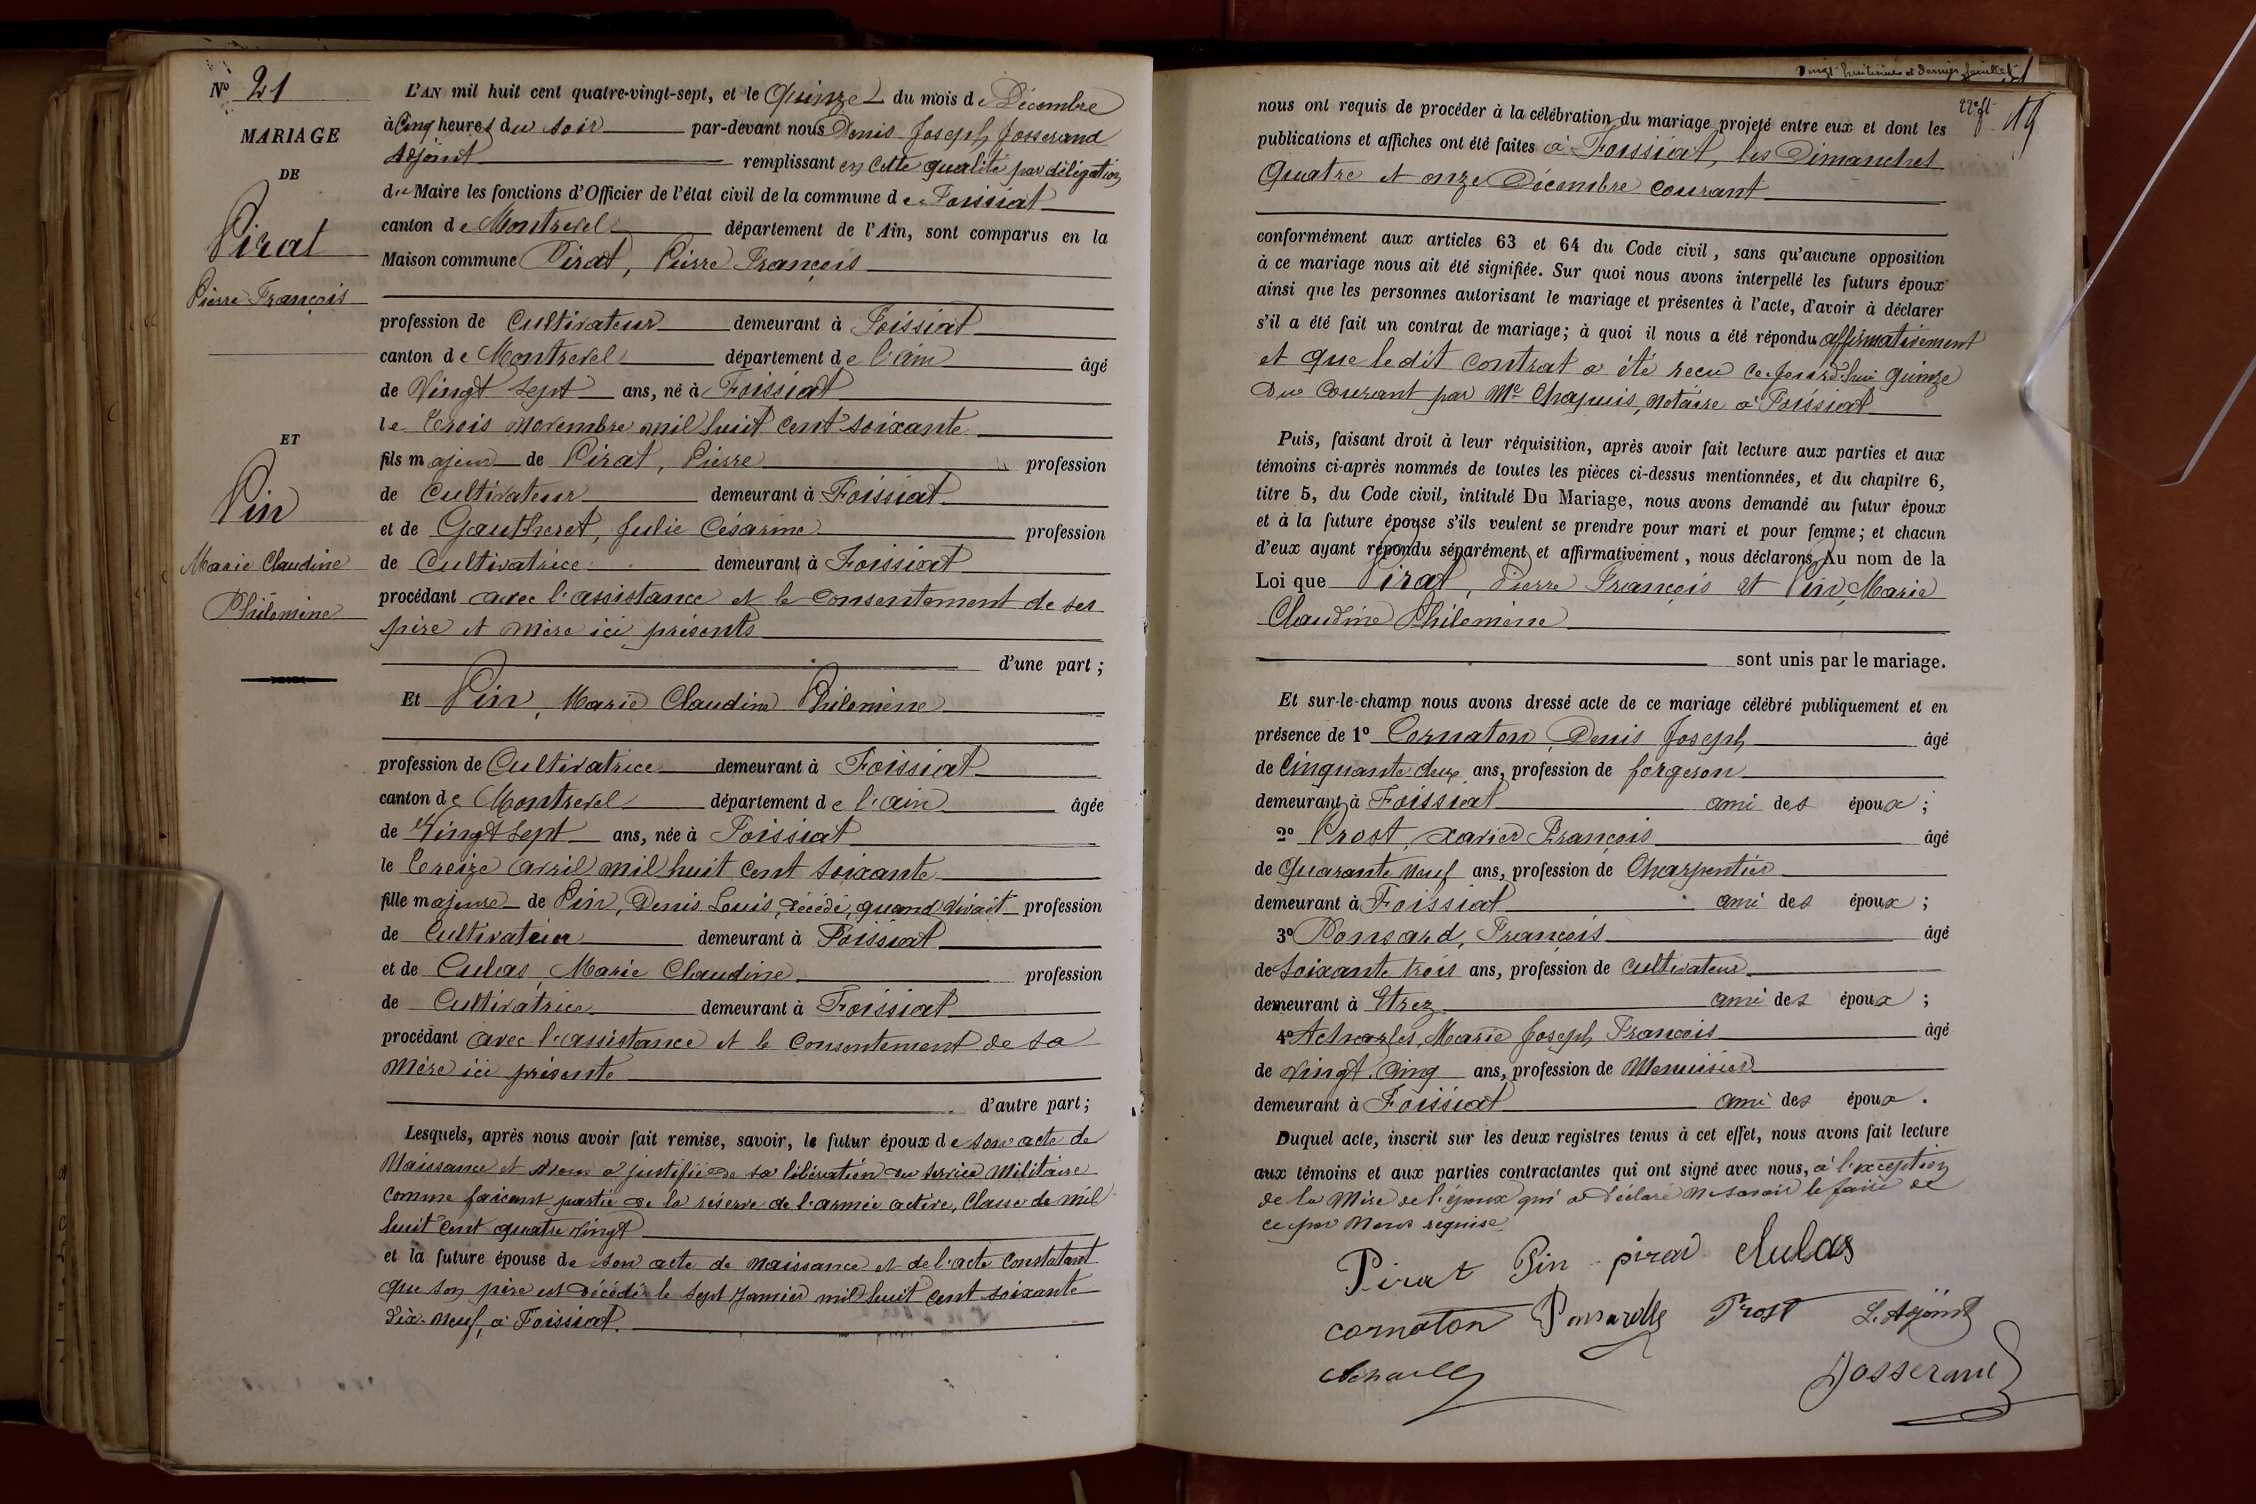 No 21
MARIAGE
DE
Pirat
Pierre François
ET
Pin
Marie Claudine
Philomène
L'AN mil huit cent quatre-vingt-sept, et le Quinze du mois de Décembre
à Cinq heures du soir par-devant nous Denis Joseph Josserand
Adjoint remplissant en cette qualité par délégation
du Maire les fonctions d'Officier de l'état civil de la commune de Foissiat
canton de Montrevel département de l'Ain, sont comparus en la
Maison commune Pirat, Pierre François
profession de Cultivateur demeurant à Foissiat
canton de Montrevel département de l'ain âgé
de Vingt sept ans, né à Foissiat
le trois novembre mil huit cent soixante
fils majeur de Pirat, Pierre profession
de Cultivateur demeurant à Foissiat
et de Gautheret, Julie Césarine profession
de Cultivatrice demeurant à Foissiat
procédant avec l'assistance et le consentement de ses
père et mère ici présents
d'une part;
Et Pin, Marie Claudine Philomène
profession de Cultivatrice demeurant à Foissiat
canton de Montrevel département de l'ain âgée
de Vingt sept ans, née à Foissiat
le treize avril mil huit cent soixante
fille majeure de Pin, Denis Louis, décédé, quand vivait profession
de Cultivateur demeurant à Foissiat
et de Culas, Marie Claudine profession
de Cultivatrice demeurant à Foissiat
procédant avec l'assistance et le consentement de sa
Mère ici présente
d'autre part;
Lesquels, après nous avoir fait remise, savoir, le futur époux de son acte de
Naissance et nous a justifié de sa libération du service Militaire
comme faisant partie de la réserve de l'armée active, Classe de mil
huit cent quatre vingt
et la future épouse de son acte de naissance et de l'acte constatant
que son père est décédé le sept Janvier mil huit cent soixante
dix-neuf, à Foissiat.
Vingt huitième et dernier feuillet
22e ft 19
nous ont requis de procéder à la célébration du mariage projeté entre eux et dont les
publications et affiches ont été faites à Foissiat, les Dimanches
Quatre et onze Décembre courant
conformément aux articles 63 et 64 du Code civil, sans qu'aucune opposition
à ce mariage nous ait été signifiée. Sur quoi nous avons interpellé les futurs époux
ainsi que les personnes autorisant le mariage et présentes à l'acte, d'avoir à déclarer
s'il a été fait un contrat de mariage; à quoi il nous a été répondu affirmativement
et que ledit contrat a été reçu ce jourd'hui quinze
du courant par Me Chapuis, notaire à Foissiat
Puis, faisant droit à leur réquisition, après avoir fait lecture aux parties et aux
témoins ci-après nommés de toutes les pièces ci-dessus mentionnées, et du chapitre 6,
titre 5, du Code civil, intitulé Du Mariage, nous avons demandé au futur époux
et à la future épouse s'ils veulent se prendre pour mari et pour femme; et chacun
d'eux ayant répondu séparément et affirmativement, nous déclarons Au nom de la
Loi que Pirat, Pierre François et Pin, Marie
Claudine Philomène
sont unis par le mariage.
Et sur-le-champ nous avons dressé acte de ce mariage célébré publiquement et en
présence de 1º Cornaton, Denis Joseph âgé
de Cinquante deux ans, profession de forgeron
demeurant à Foissiat ami des époux;
2º Prost, Xavier François âgé
de Quarante neuf ans, profession de Charpentier
demeurant à Foissiat ami des époux;
3º Ponsard, François âgé
de Soixante trois ans, profession de cultivateur
demeurant à Etrez ami des époux;
4º Acharles, Marie Joseph François âgé
de Vingt Cinq ans, profession de Menuisier
demeurant à Foissiat ami des époux.
Duquel acte, inscrit sur les deux registres tenus à cet effet, nous avons fait lecture
aux témoins et aux parties contractantes qui ont signé avec nous, à l'exception
de la Mère de l'époux qui a déclaré ne savoir le faire de
ce par Nous requise
Pirat Pin pirat Culas
cornaton Prost L'Adjoint
Josserand